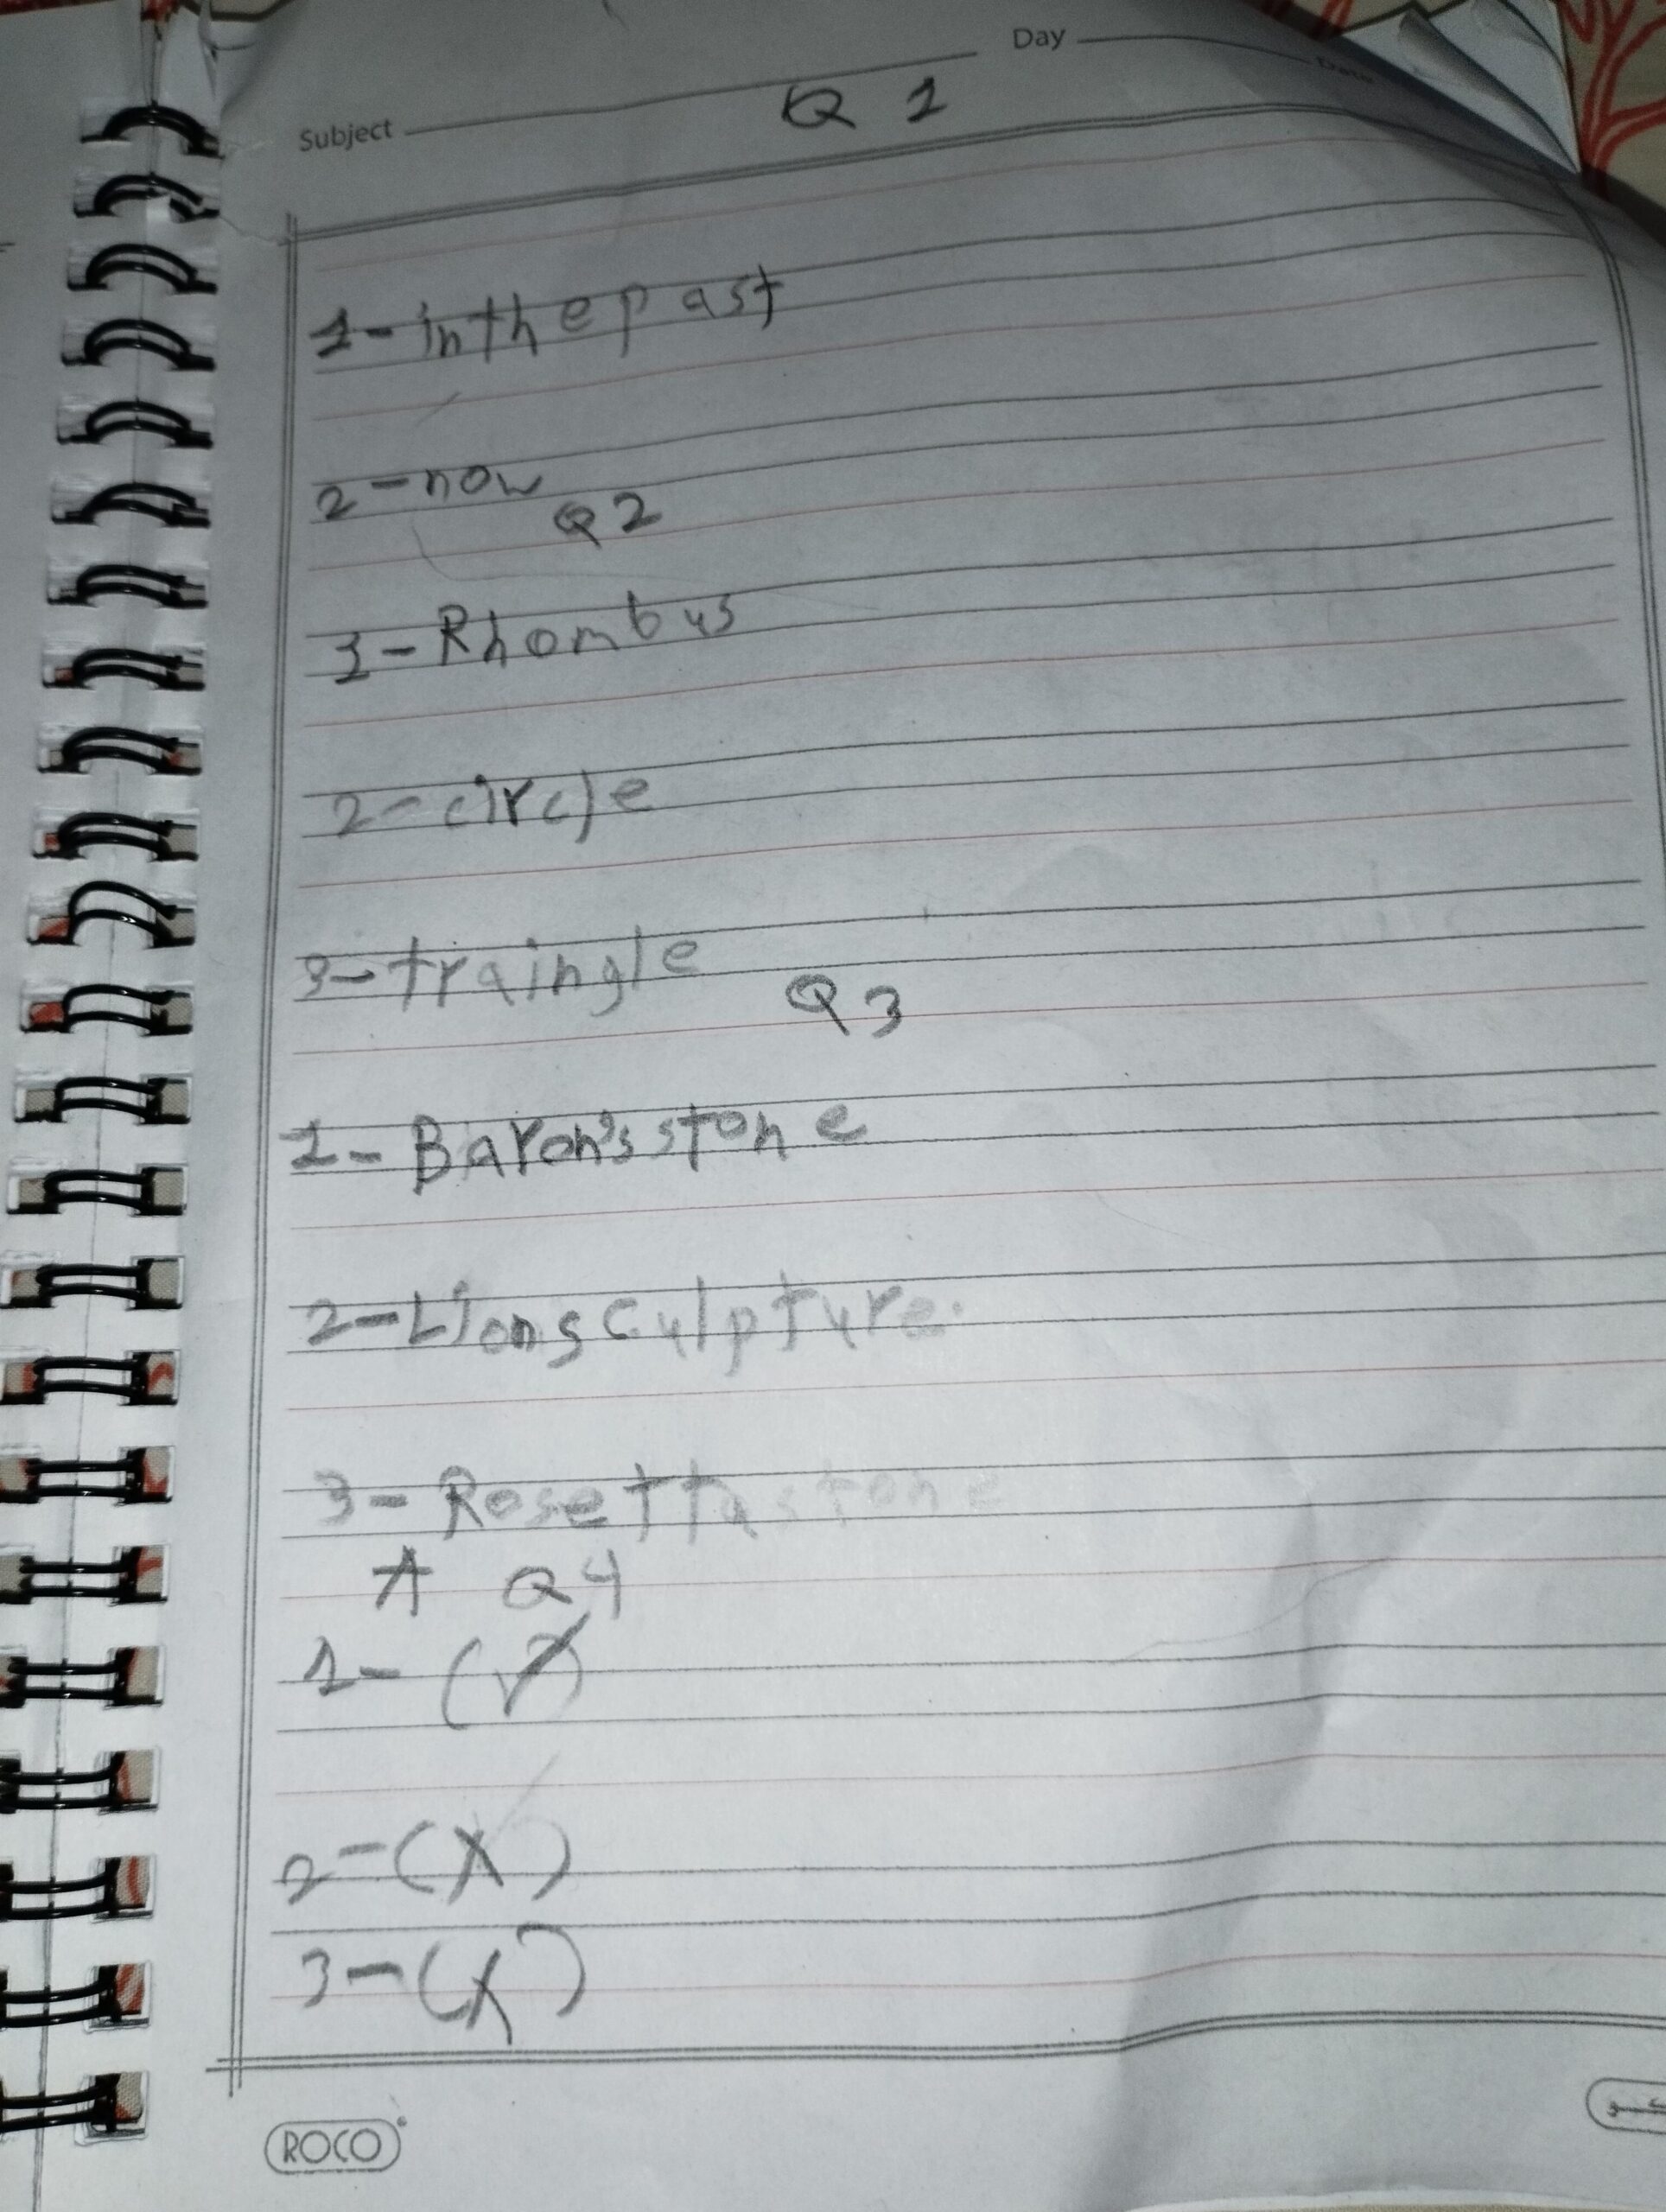 Day
Date
Subject
Q 1
1- in the past
2- now
Q 2
1- Rhombus
2- circle
3- traingle
Q 3
1- Baron's stone
2- Lion sculpture.
3- Rosetta stone
A Q4
1- (✓)
2- (X)
3- (X)
ROCO